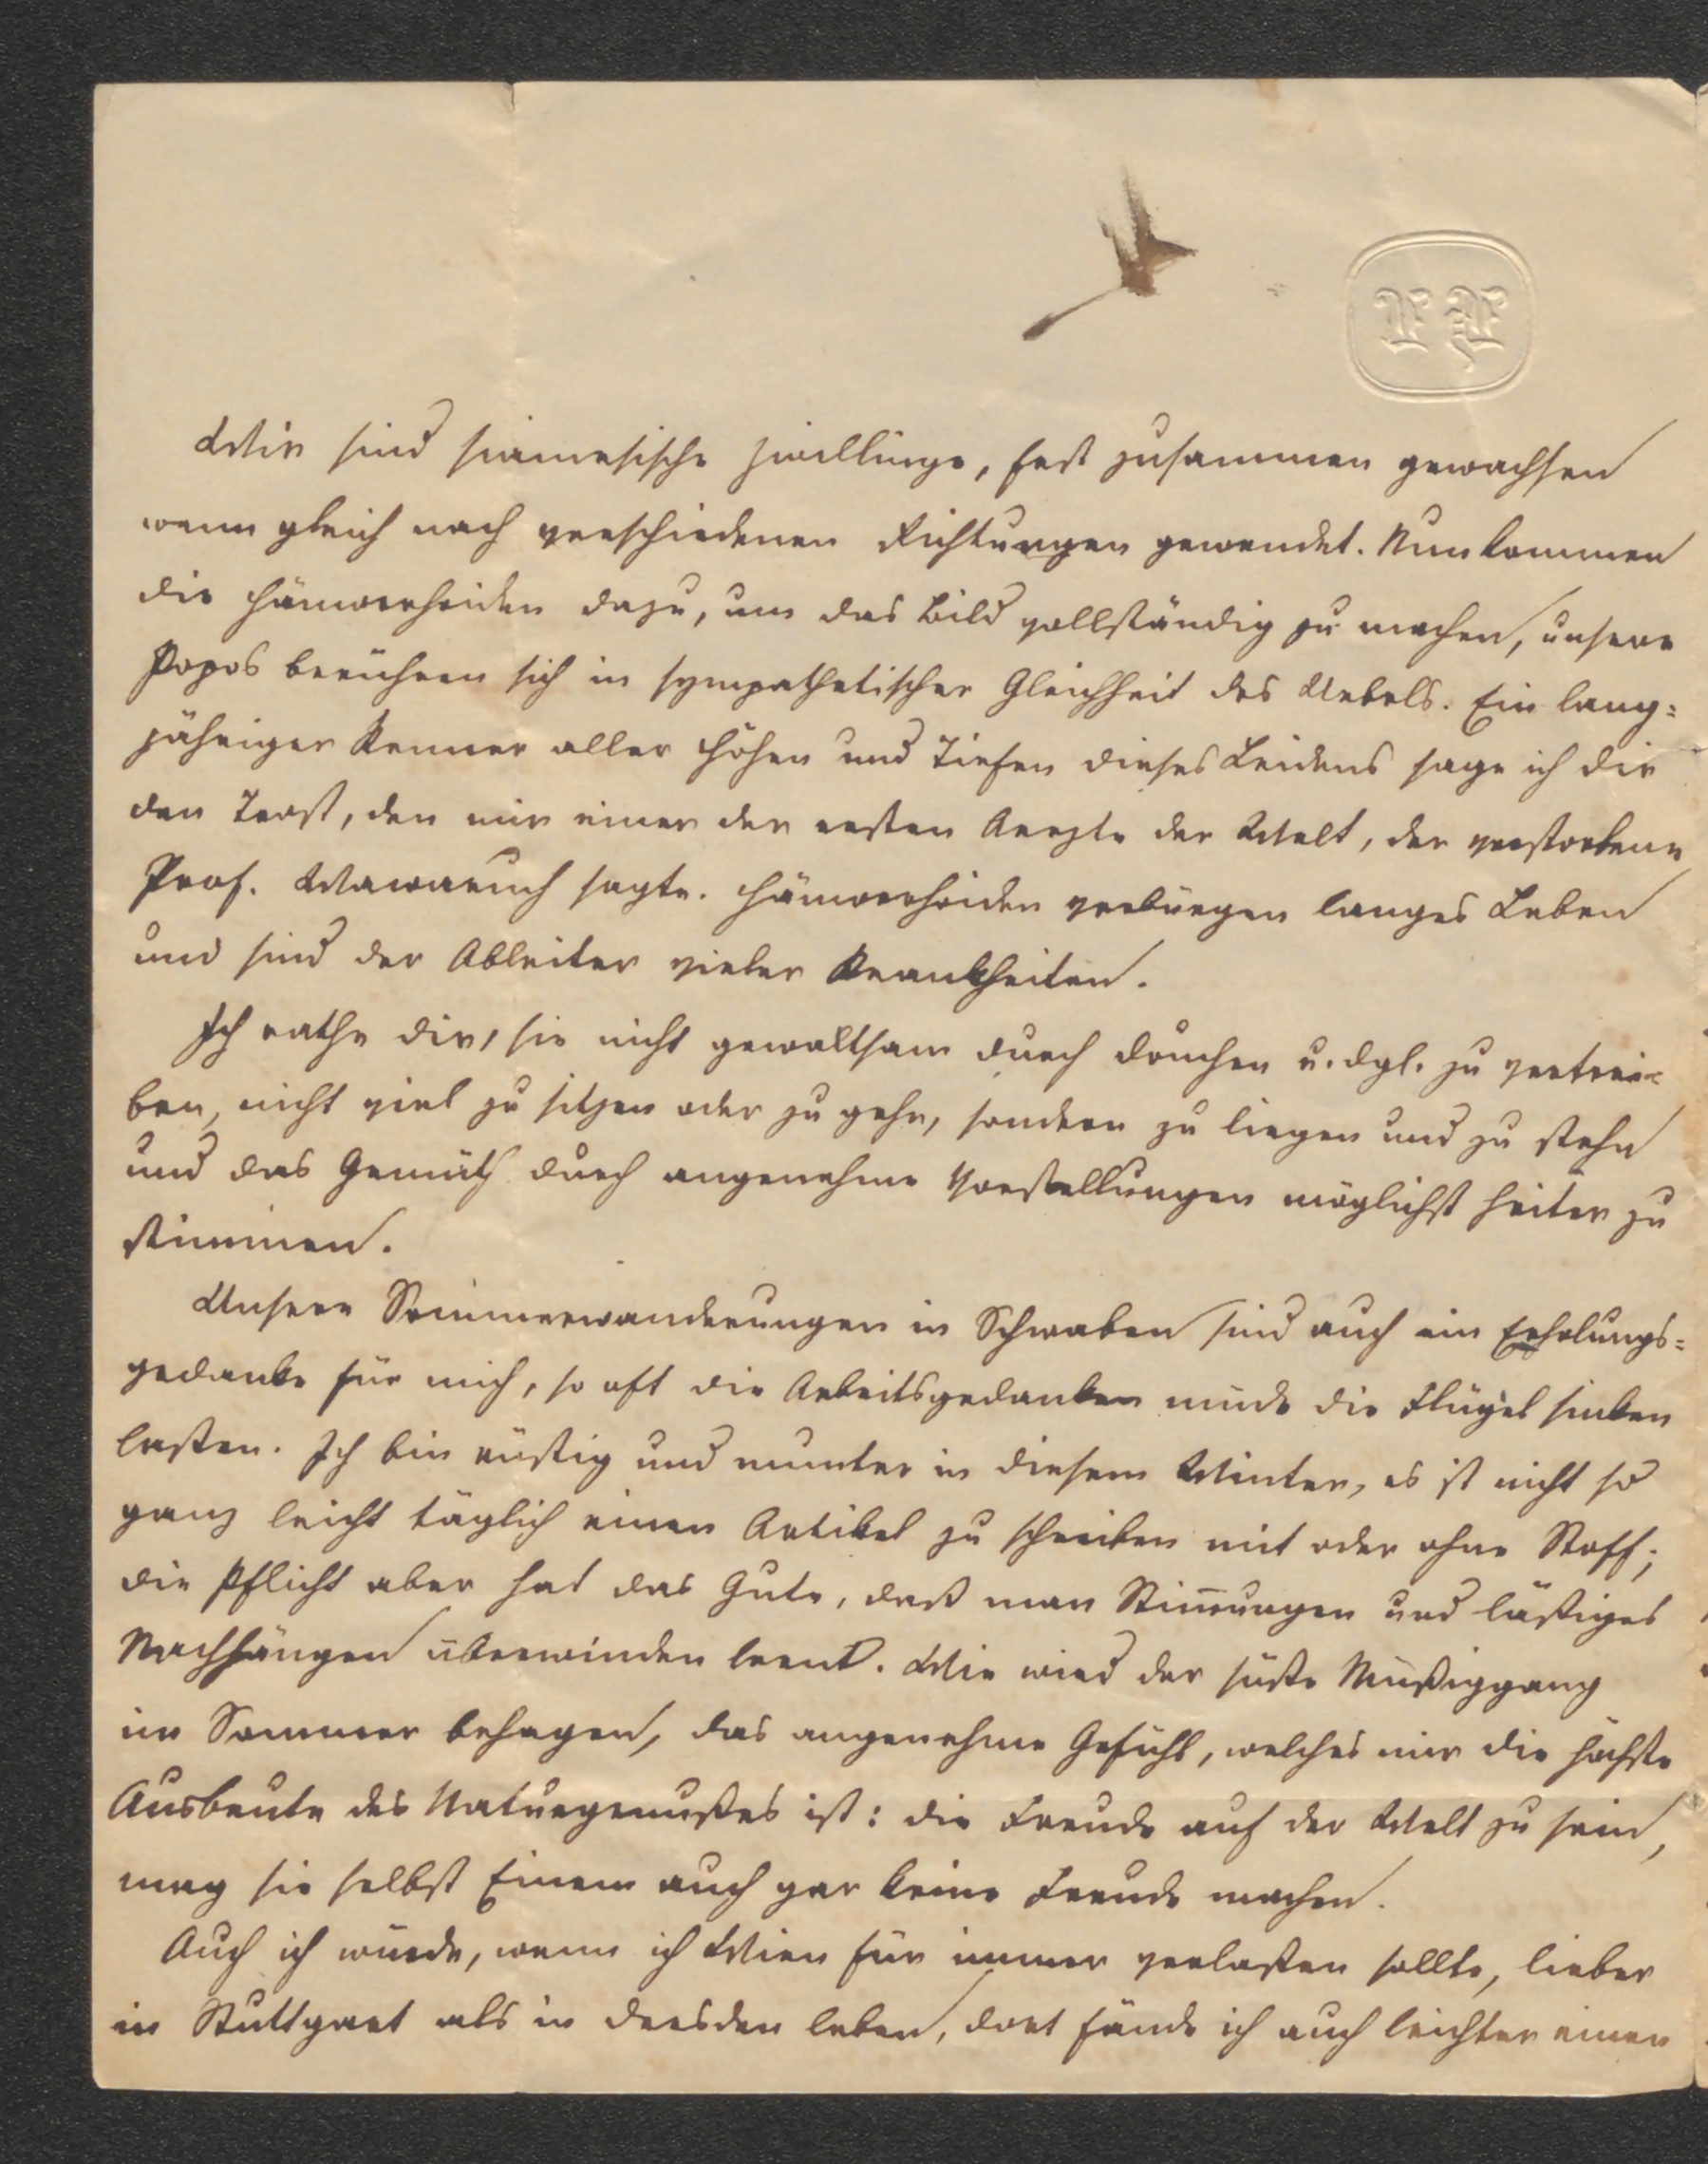 Wir sind siamesische Zwillinge, fest zusammen gewachsen
wenn gleich nach verschiedenen Richtungen gewendet. Nun kommen
die Hämorrhoiden dazu, um das Bild vollständig zu machen, unsere
Popos berühren sich in sympathetischer Gleichheit des Uebels. Ein lang=
jähriger Kenner aller Höhen und Tiefen dieses Leidens sage ich dir
den Trost, den mir einer der ersten Aerzte der Welt, der verstorbene
Prof. Wawruch sagte. Hämorrhoiden verbürgen langes Leben
und sind der Ableiter vieler Krankheiten.
Ich rathe dir, sie nicht gewaltsam durch Douchen u. dgl. zu vertrei=
ben, nicht viel zu sitzen oder zu gehn, sondern zu liegen und zu stehn
und das Gemüth durch angenehme Vorstellungen möglichst heiter zu
stimmen.
Unsere Sommerwanderungen in Schwaben sind auch ein Erholungs=
gedanke für mich, so oft die Arbeitsgedanken müde die Flügel sinken
laßen. Ich bin rüstig und munter in diesem Winter, es ist nicht so
ganz leicht täglich einen Artikel zu schreiben mit oder ohne Stoff;
die Pflicht aber hat das Gute, daß man Stim̅ungen und läßiges
Nachhängen überwinden lernt. Wie wird der süße Müßiggang
im Sommer behagen, das angenehme Gefühl, welches mir die höchste
Ausbeute des Naturgenußes ist: die Freude auf der Welt zu sein,
mag sie selbst Einem auch gar keine Freude machen.
Auch ich würde, wenn ich Wien für immer verlaßen sollte, lieber
in Stuttgart als in Dresden leben, dort fände ich auch leichter einen